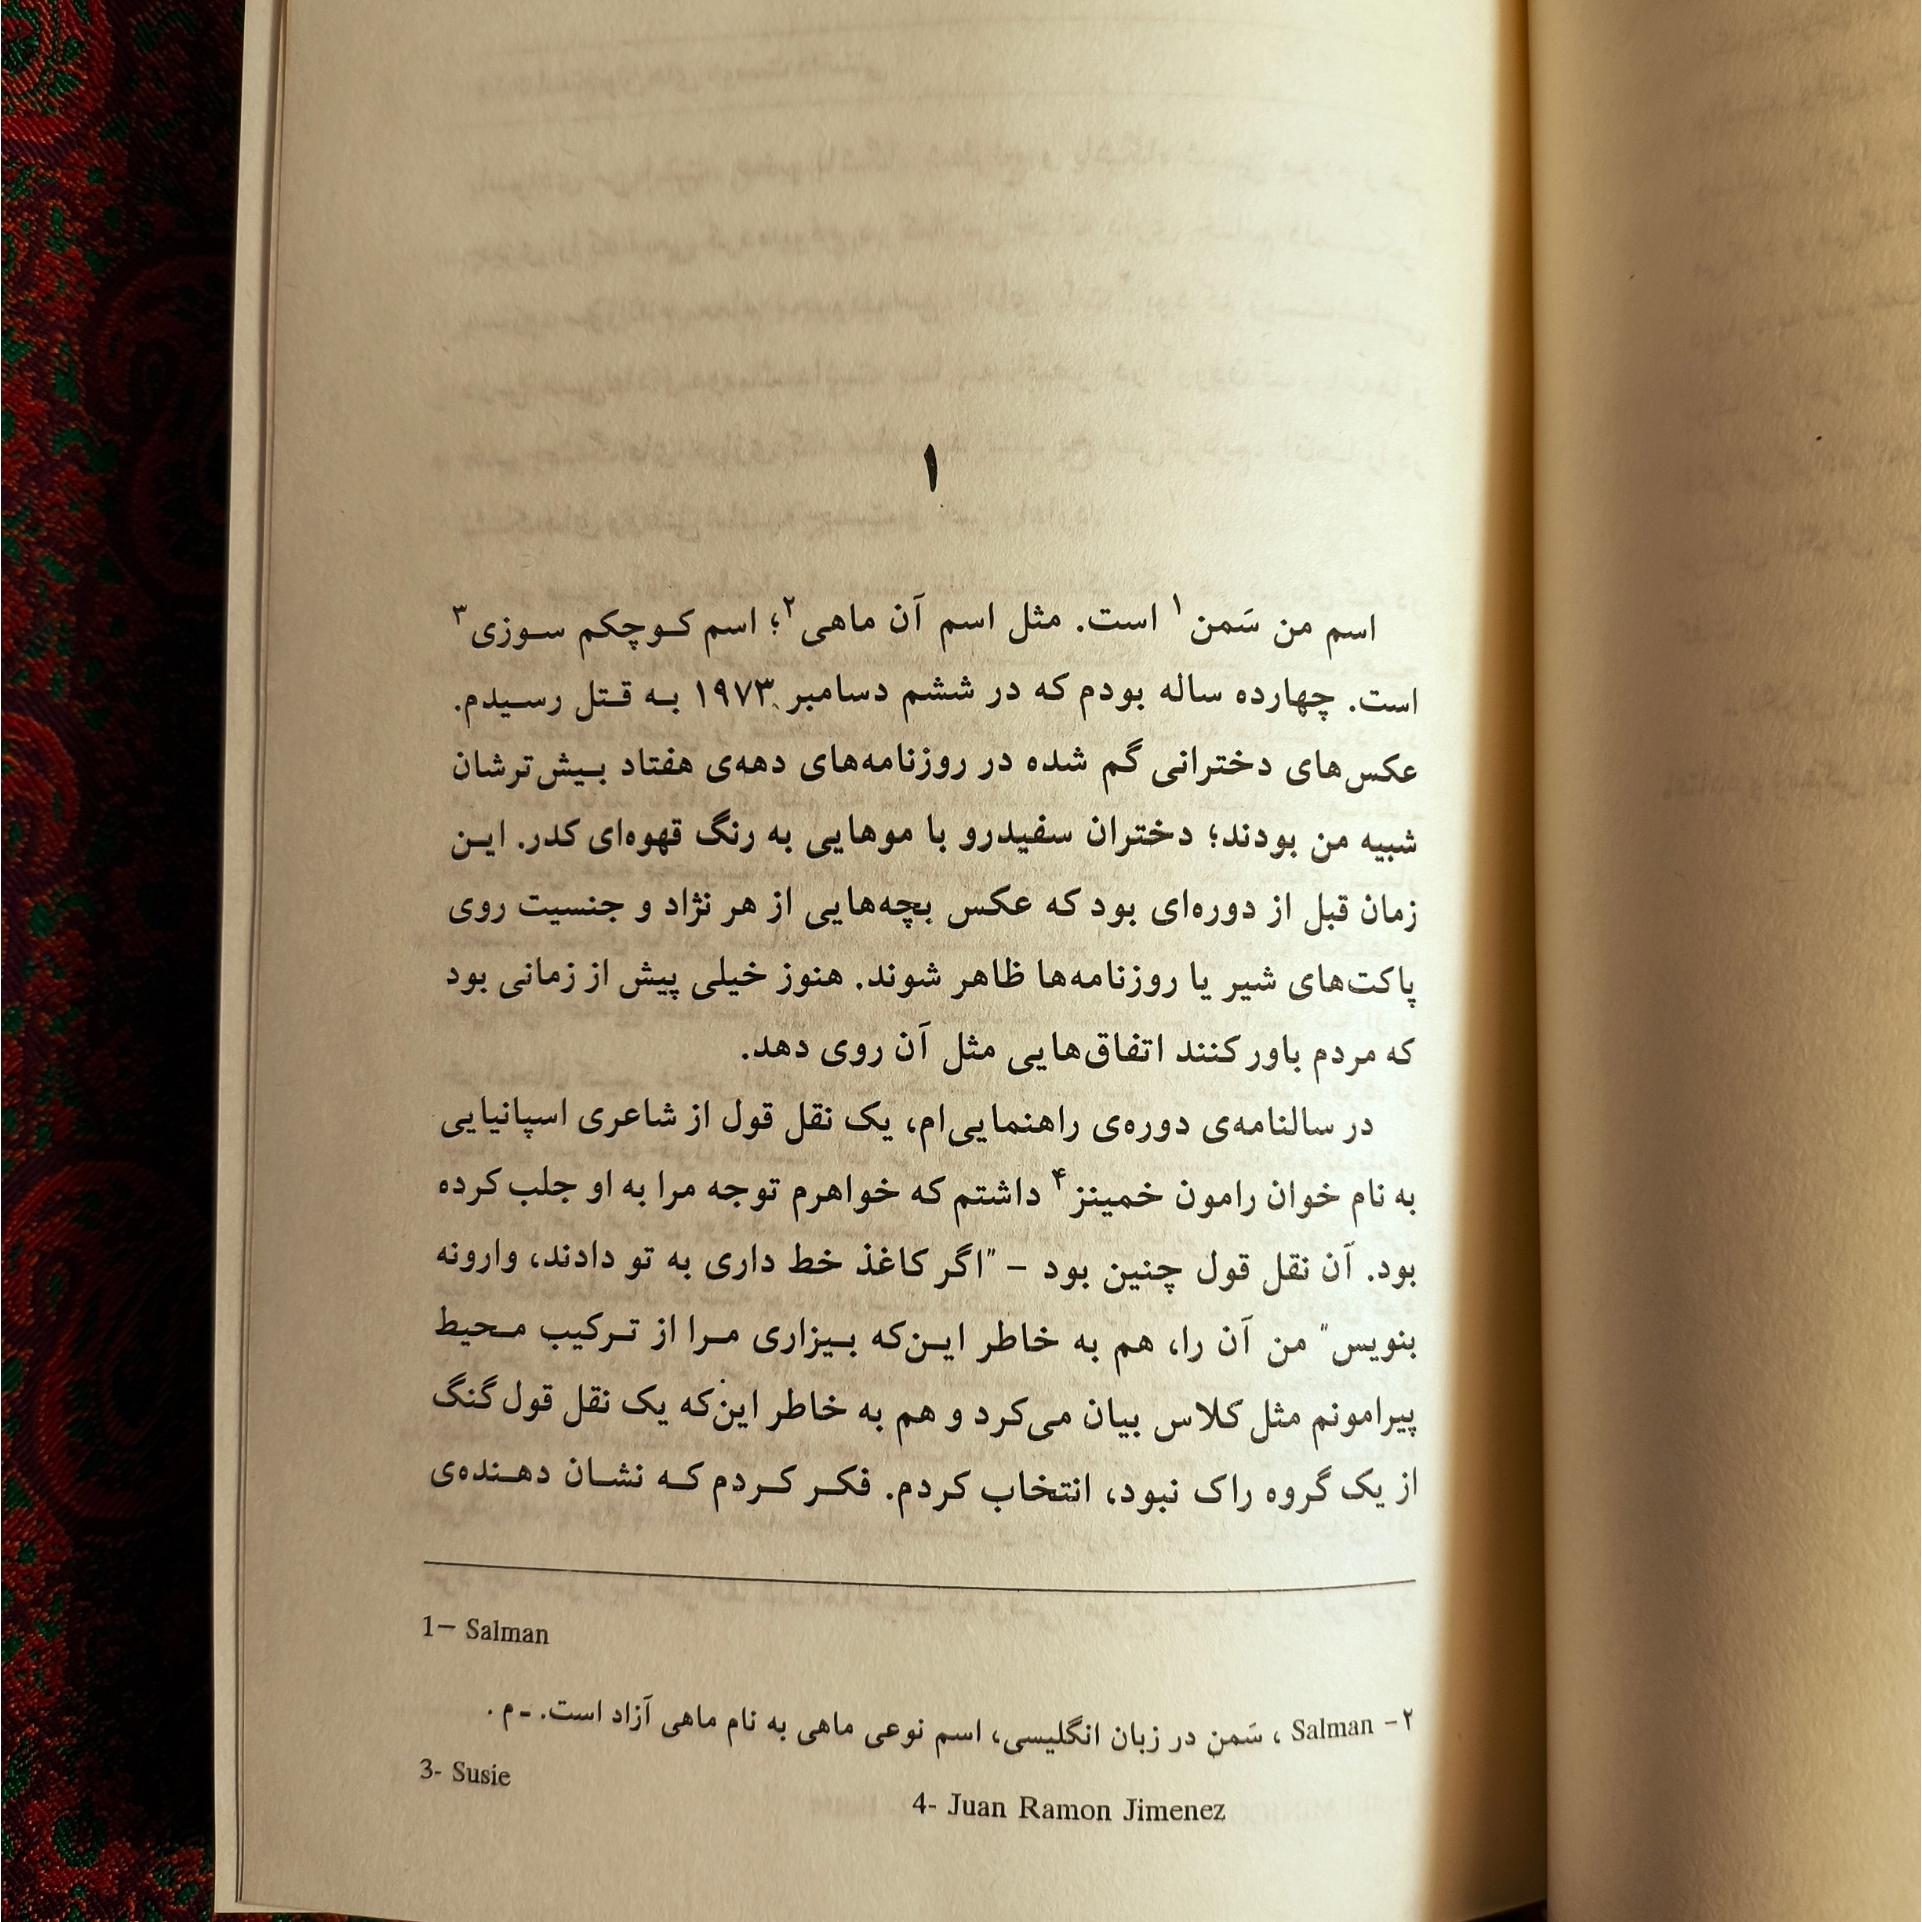 ۱
اسم من سَمن۱ است. مثل اسم آن ماهی۲؛ اسم کوچکم سوزی۳
است. چهارده ساله بودم که در ششم دسامبر ۱۹۷۳ به قتل رسیدم.
عکس‌های دخترانی گم شده در روزنامه‌های دهه‌ی هفتاد بیش‌ترشان
شبیه من بودند؛ دختران سفیدرو با موهایی به رنگ قهوه‌ای کدر. این
زمان قبل از دوره‌ای بود که عکس بچه‌هایی از هر نژاد و جنسیت روی
پاکت‌های شیر یا روزنامه‌ها ظاهر شوند. هنوز خیلی پیش از زمانی بود
که مردم باور کنند اتفاق‌هایی مثل آن روی دهد.
در سالنامه‌ی دوره‌ی راهنمایی‌ام، یک نقل قول از شاعری اسپانیایی
به نام خوان رامون خمینز۴ داشتم که خواهرم توجه مرا به او جلب کرده
بود. آن نقل قول چنین بود – "اگر کاغذ خط داری به تو دادند، وارونه
بنویس" من آن را، هم به خاطر این‌که بیزاری مرا از ترکیب محیط
پیرامونم مثل کلاس بیان می‌کرد و هم به خاطر این‌که یک نقل قول گنگ
از یک گروه راک نبود، انتخاب کردم. فکر کردم که نشان دهنده‌ی
1– Salman
۲- Salman ، سَمن در زبان انگلیسی، اسم نوعی ماهی به نام ماهی آزاد است. - م .
3- Susie
4- Juan Ramon Jimenez